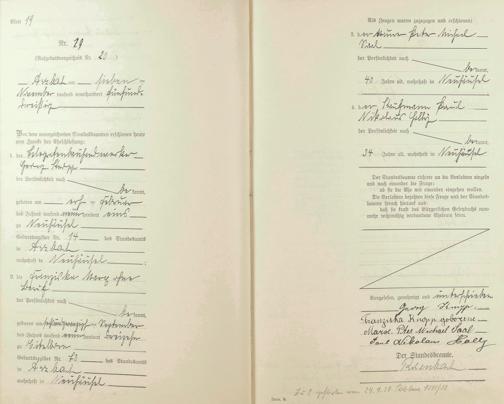 Blatt 19
Nr. 19
(Aufgebotsverzeichnis Nr. 20)
Arzbach am sieben -
November tausend neunhundert fünfund-
dreißig
Vor dem unterzeichneten Standesbeamten erschienen heute
zum Zwecke der Eheschließung:
1. der
Georg Knopp
der Persönlichkeit nach
be kannt,
geboren am elf - Februar
des Jahres tausend neunhundert eins
zu Neuhäusel
Geburtsregister Nr. 14 des Standesamts
in Arzbach
wohnhaft in Neuhäusel
2. die Franziska ohne
Beruf
der Persönlichkeit nach
be kannt,
geboren am September
des Jahres tausend neunhundert dreizehn
zu
Geburtsregister Nr. des Standesamts
in Arzbach
wohnhaft in Neuhäusel
Als Zeugen waren zugezogen und erschienen:
3. der Peter Michael
Saal
der Persönlichkeit nach
be kannt,
40 Jahre alt, wohnhaft in Neuhäusel
4. der, Kaufmann Paul
Nikolaus
der Persönlichkeit nach
be kannt,
34 Jahre alt, wohnhaft in Neuhäusel
Der Standesbeamte richtete an die Verlobten einzeln
und nach einander die Frage:
ob sie die Ehe mit einander eingehen wollen.
Die Verlobten bejahten diese Frage und der Standes-
beamte sprach hierauf aus,
daß sie kraft des Bürgerlichen Gesetzbuchs nun-
mehr rechtmäßig verbundene Eheleute seien.
Vorgelesen, genehmigt und unterschrieben
Georg Knopp
Franziska Knopp geborene
Peter Michael Saal
Paul Nikolaus
Der Standesbeamte.